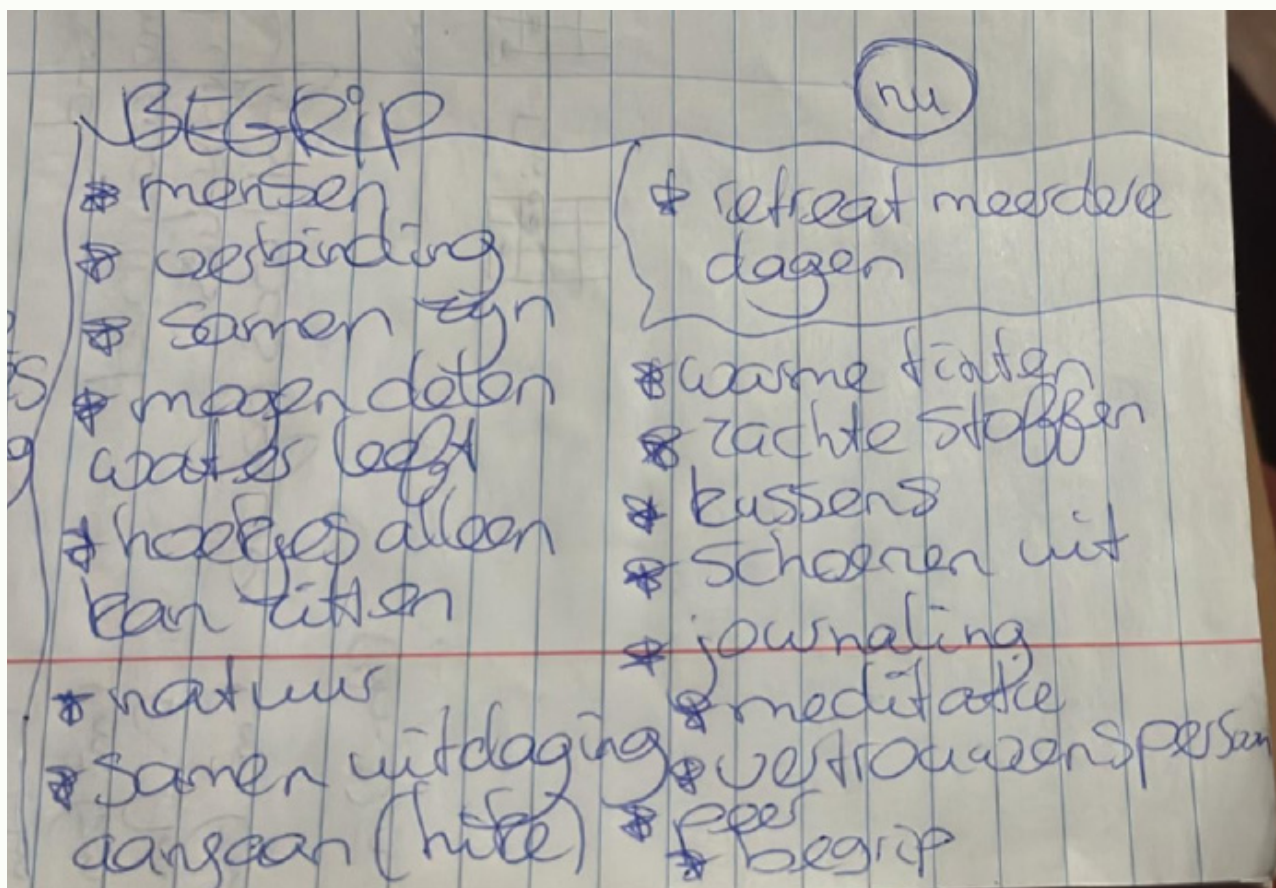 BEGRiP
* mensen
* verbinding
* samen zijn
* mogen delen
wat er leeft
* hoekjes alleen
kan zitten
* natuur
* samen uitdaging
aangaan (hike)
nu
* retreat meerdere
dagen
* warme tinten
* zachte stoffen
* kussens
* schoenen uit
* journaling
* meditatie
* vertrouwenspersoon
* peer
* begrip